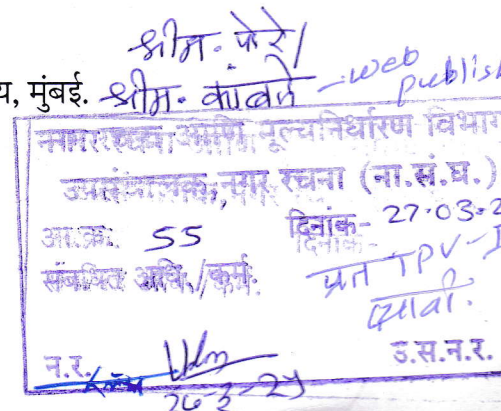 श्रीम. पोरे/
य, मुंबई. श्रीम. कांबळे - web publish
नगर रचना आणि मूल्यनिर्धारण विभाग
उपसंचालक, नगर रचना (ना.सं.घ.)
आ.क्र. 55 दिनांक- 27.03.2
संबंधित अधि./कर्म. प्रत TPV-I
द्यावी.
न.र. उ.स.न.र.